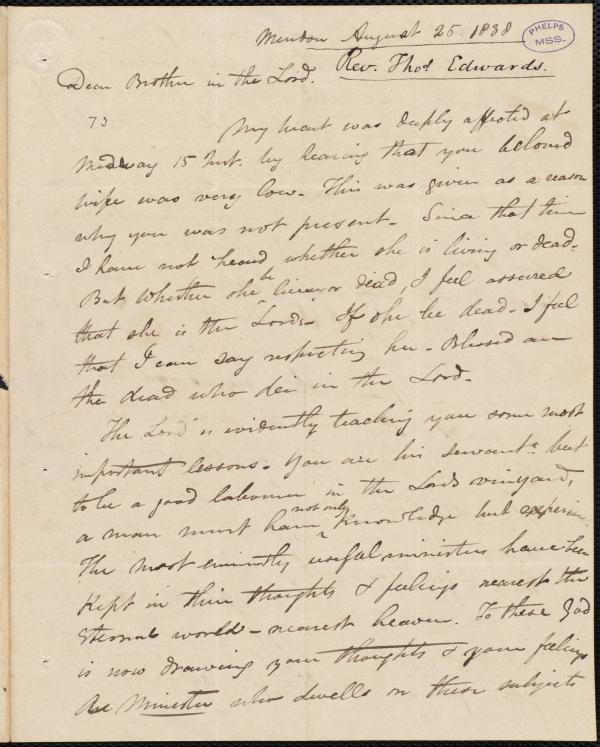 Mendon August 25. 1838
PHELPS
MSS.
Rev. Thos Edwards.
Dear Brother in the Lord.
73
My heart was deeply affected at
Medway 15 Inst. by hearing that you beloved
wife was very low. This was given as a reason
why you was not present. Since that time
I have not heard whether she is living or dead.
But whether she be living or dead, I feel assured
that she is the Lords. If she be dead. I feel
that I can say respecting her. Blessed are
the dead who die in the Lord.
The Lord is evidently teaching you some most
important lessons. You are his servant. but
to be a good labourer in the Lords vineyard,
a man must have not only knowledge but
The most eminently useful ministers have been
Kept in their thoughts & feelings nearest the
eternal world - nearest heaven. To these God
is now drawing your thoughts & your feelings
Minister who dwells on these subjects